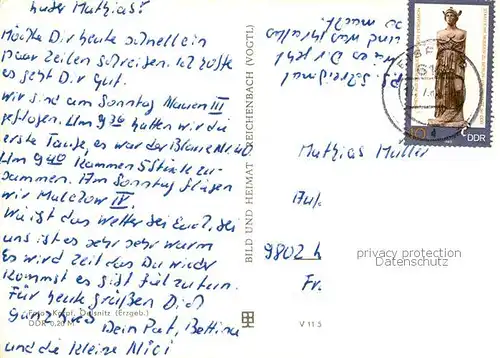 Lieber Mathias!
Möchte Dir heute schnell ein
paar Zeilen schreiben. Ich hoffe
es geht Dir gut.
Wir sind am Sonntag Nauen III
geflogen. Um 9 20 hatten wir die
erste Taube, es war der Blaue Nr. 40.
Um 9 40 kammen 5 Stück zu-
sammen. Am Sonntag fliegen
wir Malchow IV.
Wie ist das Wetter bei Euch, bei
uns ist es sehr sehr warm
Es wird Zeit das Du wieder
kommst es gibt viel zu tun.
Für heute grüßen Dich
ganz lieb
Dein Pat, Bettina
und die kleine Mici
Foto: Karpf, Oelsnitz (Erzgeb.)
DDR 0,20 M
BILD UND HEIMAT REICHENBACH (VOGTL)
V 11 5
P.S. Schreib mal
wie es Dir geht
und was Ihr alles
so macht.
DDR
10
Mathias Müller
9802
Fr.
privacy protection
Datenschutz